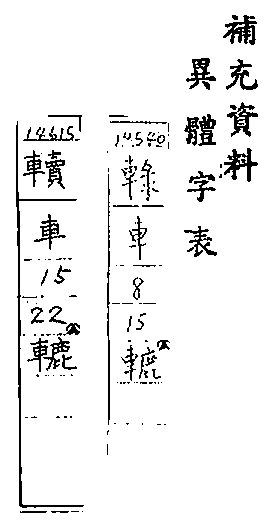 補充資料
異體字表
14540
䡎
車
8
15
轆
14615
䡱
車
15
22
轆